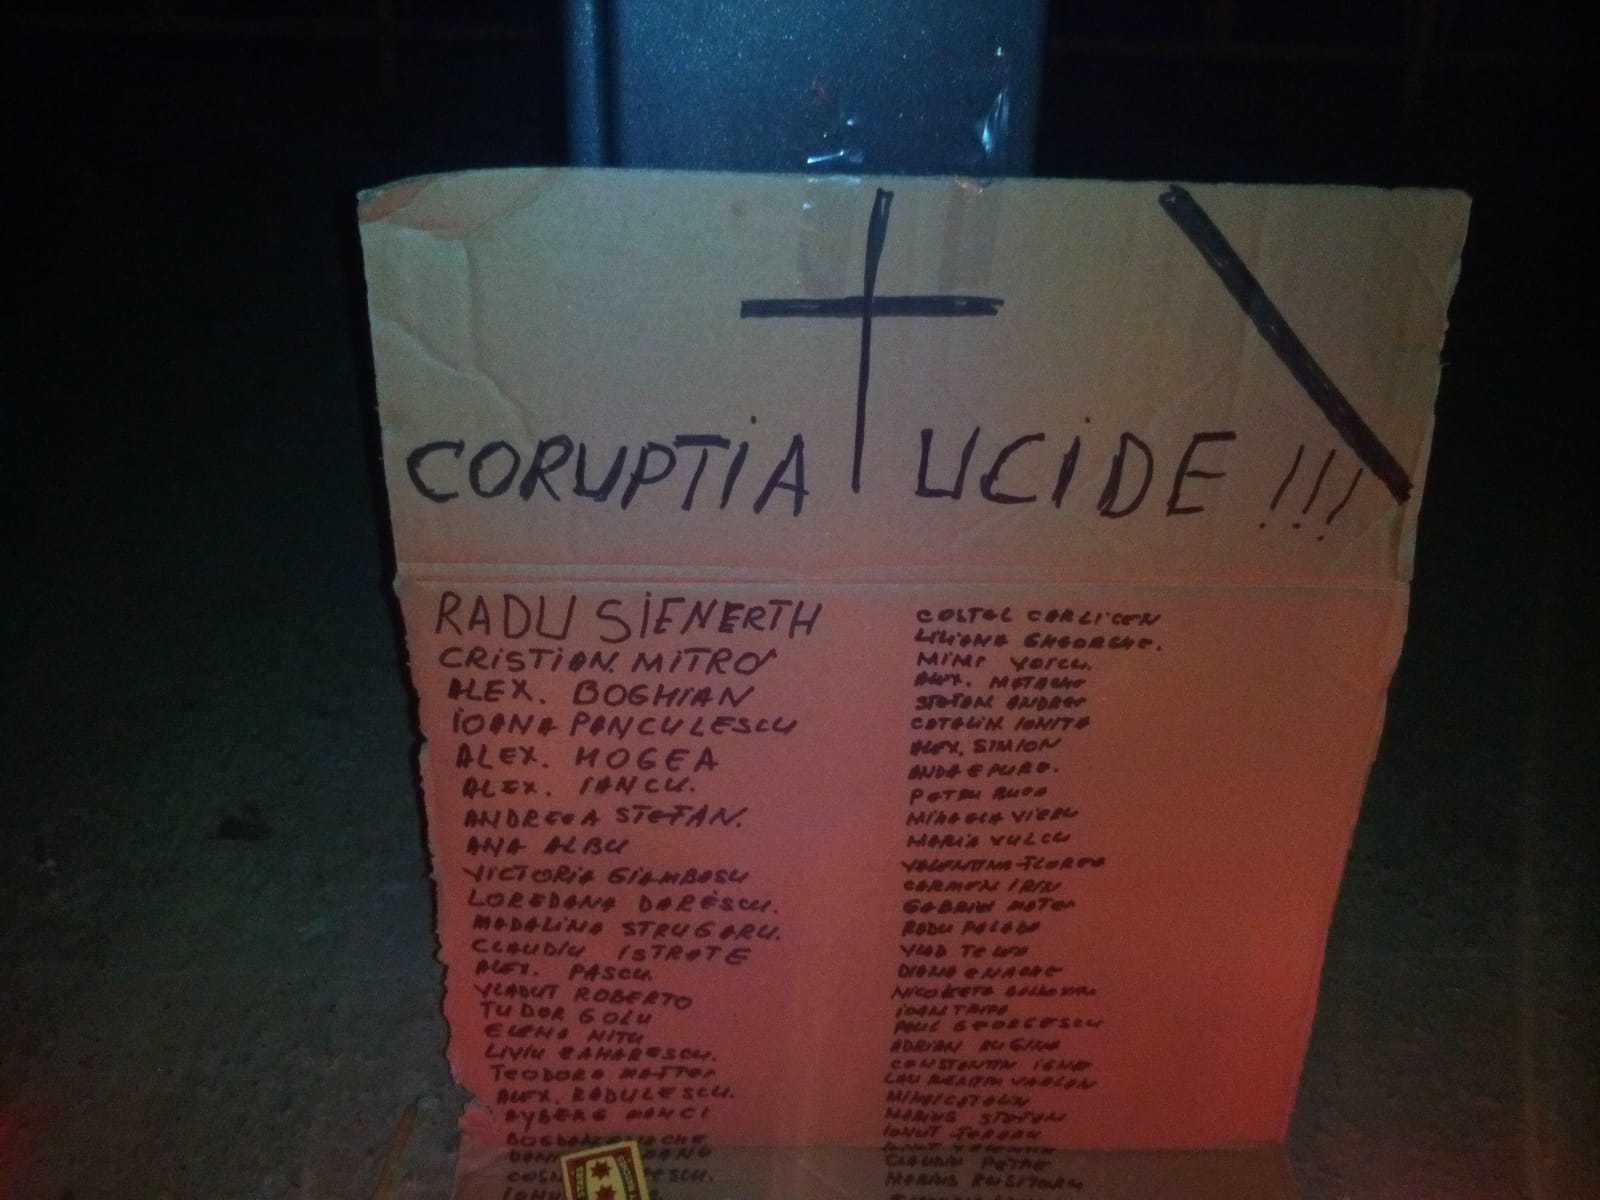 CORUPTIA UCIDE !!!
RADU SIENERTH
CRISTIAN. MITRO
ALEX. BOGHIAN
IOANA PANCULESCU
ALEX. HOGEA
ALEX. IANCU.
ANDREEA STEFAN.
ANA ALBU
VICTORIA GIAMBASU
LOREDANA DARESCU.
MADALINA STRUGARU.
CLAUDIU ISTRATE
ALEX. PASCU.
VLADUT ROBERTO
TUDOR GOLU
ELENA NITU
LIVIU ZAHARESCU.
TEODORA
ALEX. RADULESCU.
AYBERG
COSTEL
LILIANA GHEORGHE.
MIMI VOICU.
ALEX. MATACHE
STEFAN. ANDREI
CATALIN. IONITA
ALEX. SIMION
ANDA EPURE.
PETRU
MIHAELA VIERU
MARIA VULCU
VALENTINA FLOREA
CARMEN IRIN
GABRIEL MATEI
RADU PALADE
VLAD TELEA
DIANA ENACHE
NICOLETA
IOAN TRIPA
PAUL GEORGESCU
ADRIAN RUGINA
CONSTANTIN IGNAT
LAURENTIU VARLAN
MIHAI CATALIN
MARIUS STEFAN
IONUT
CLAUDIU PETRE
MARIUS